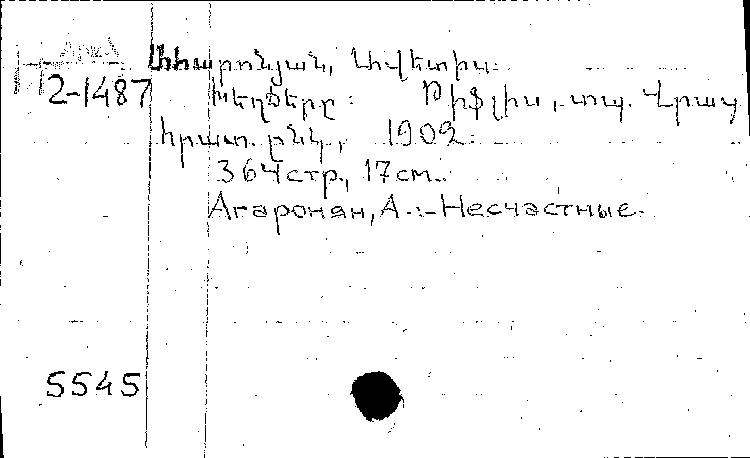 2-1487
Ահարոնյան, Ավետիս.
Խեղճերը: Թիֆլիս, տպ. Վրաց
հրատ. ընկ., 1902.
364 стр., 17 см.
Агаронян, А.:-Несчастные.
5545